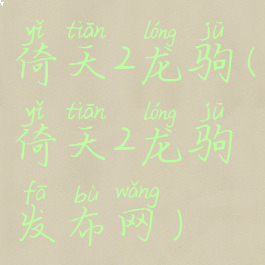 yǐ tiān lóng jū
倚天2龙驹(
yǐ tiān lóng jū
倚天2龙驹
fā bù wǎng
发布网)